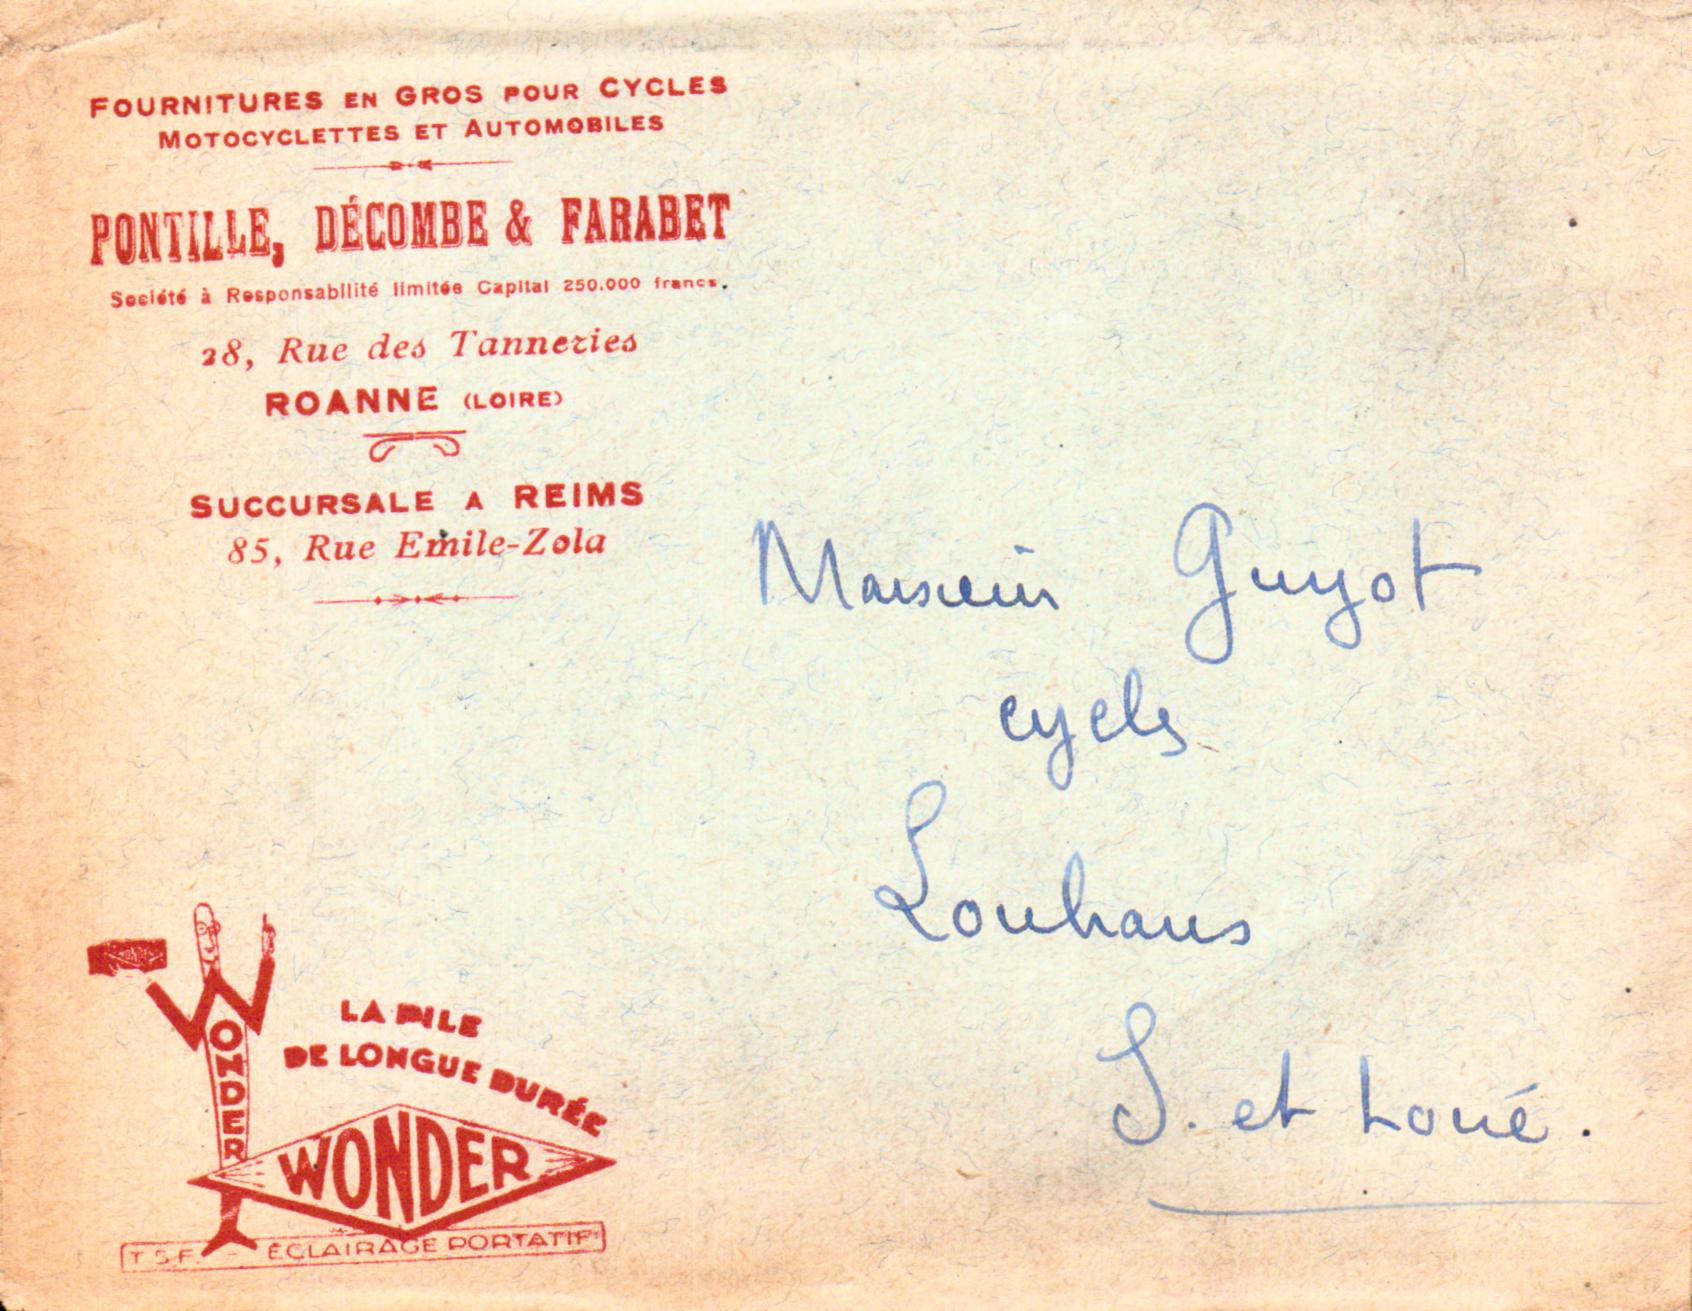 FOURNITURES EN GROS POUR CYCLES
MOTOCYCLETTES ET AUTOMOBILES
PONTILLE, DÉCOMBE & FARABET
Société à Responsabilité limitée Capital 250.000 francs.
28, Rue des Tanneries
ROANNE (LOIRE)
SUCCURSALE A REIMS
85, Rue Emile-Zola
Monsieur Guyot
cycles
Louhans
S. et Loire.
WONDER
LA PILE
DE LONGUE DURÉE
WONDER
T.S.F. - ÉCLAIRAGE PORTATIF